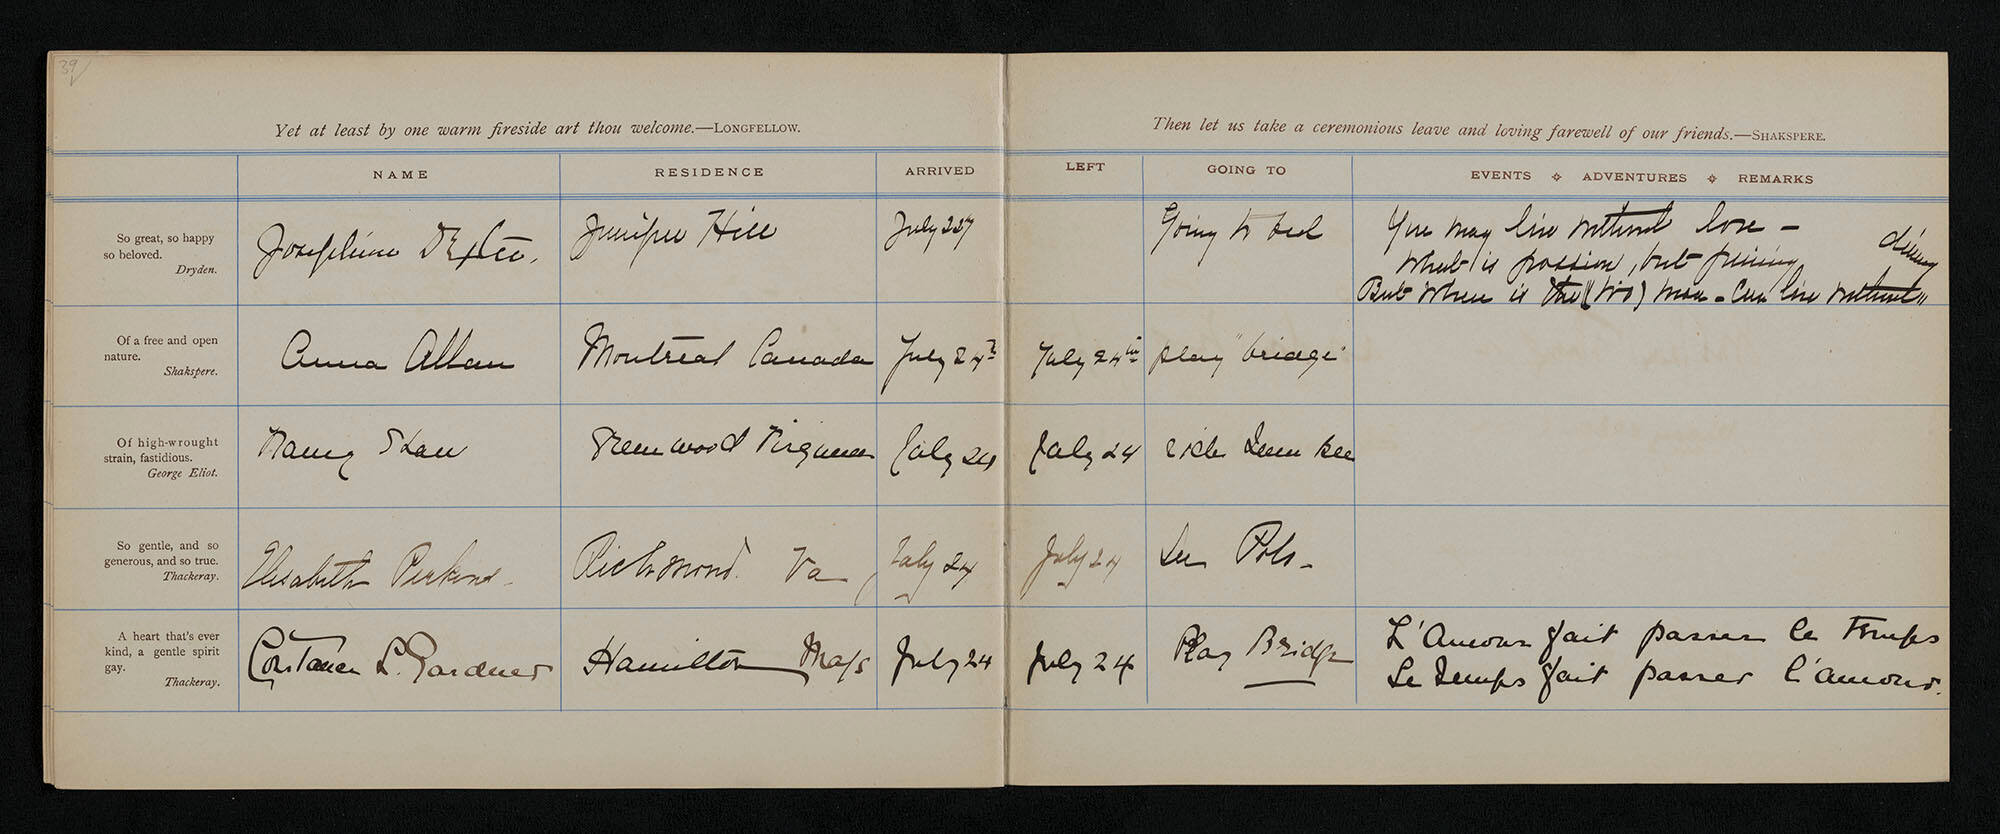 39
Yet at least by one warm fireside art thou welcome.—LONGFELLOW.
Then let us take a ceremonious leave and loving farewell of our friends.—SHAKSPERE.
NAME RESIDENCE ARRIVED LEFT GOING TO EVENTS ADVENTURES REMARKS
So great, so happy
so beloved.
Dryden.
Josephine Dexter. Juniper Hill July 23rd Going to bed
You may live without love –
What is passion, but pining
But where is the (two) man – can live without dining
Of a free and open
nature.
Shakspere.
Anna Allan Montreal Canada July 24th July 24th play "bridge"
Of high-wrought
strain, fastidious.
George Eliot.
Nancy Shaw Greenwood Virginia July 24 July 24
So gentle, and so
generous, and so true.
Thackeray.
Elisabeth Perkins – Richmond. Va July 24 July 24 See Polo –
A heart that's ever
kind, a gentle spirit
gay.
Thackeray.
Constance L. Gardner Hamilton Mass July 24 July 24 Play Bridge
L'Amour fait passer le temps
Le temps fait passer l'amour.